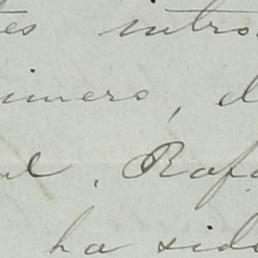 es intro
imero, d
al. Rafa
ha sido